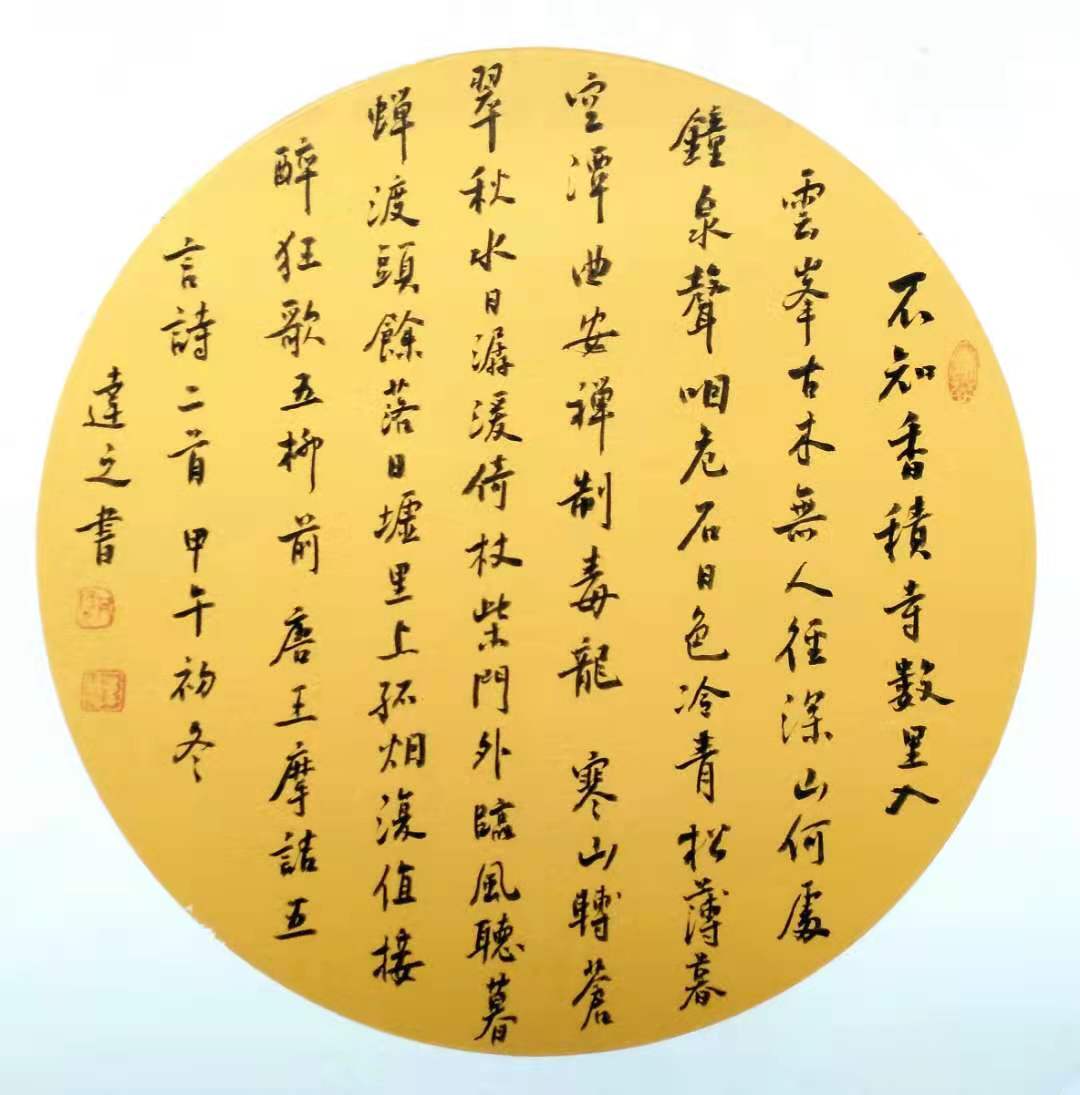 不知香積寺数里入
雲峯古木無人徑深山何處
鐘泉聲咽危石日色冷青松薄暮
空潭曲安禅制毒龍 寒山轉蒼
翠秋水日潺湲倚杖柴門外臨風聽暮
蝉渡頭餘落日墟里上孤烟復值接
醉狂歌五柳前 唐王摩詰五
言詩二首 甲午初冬
達之書